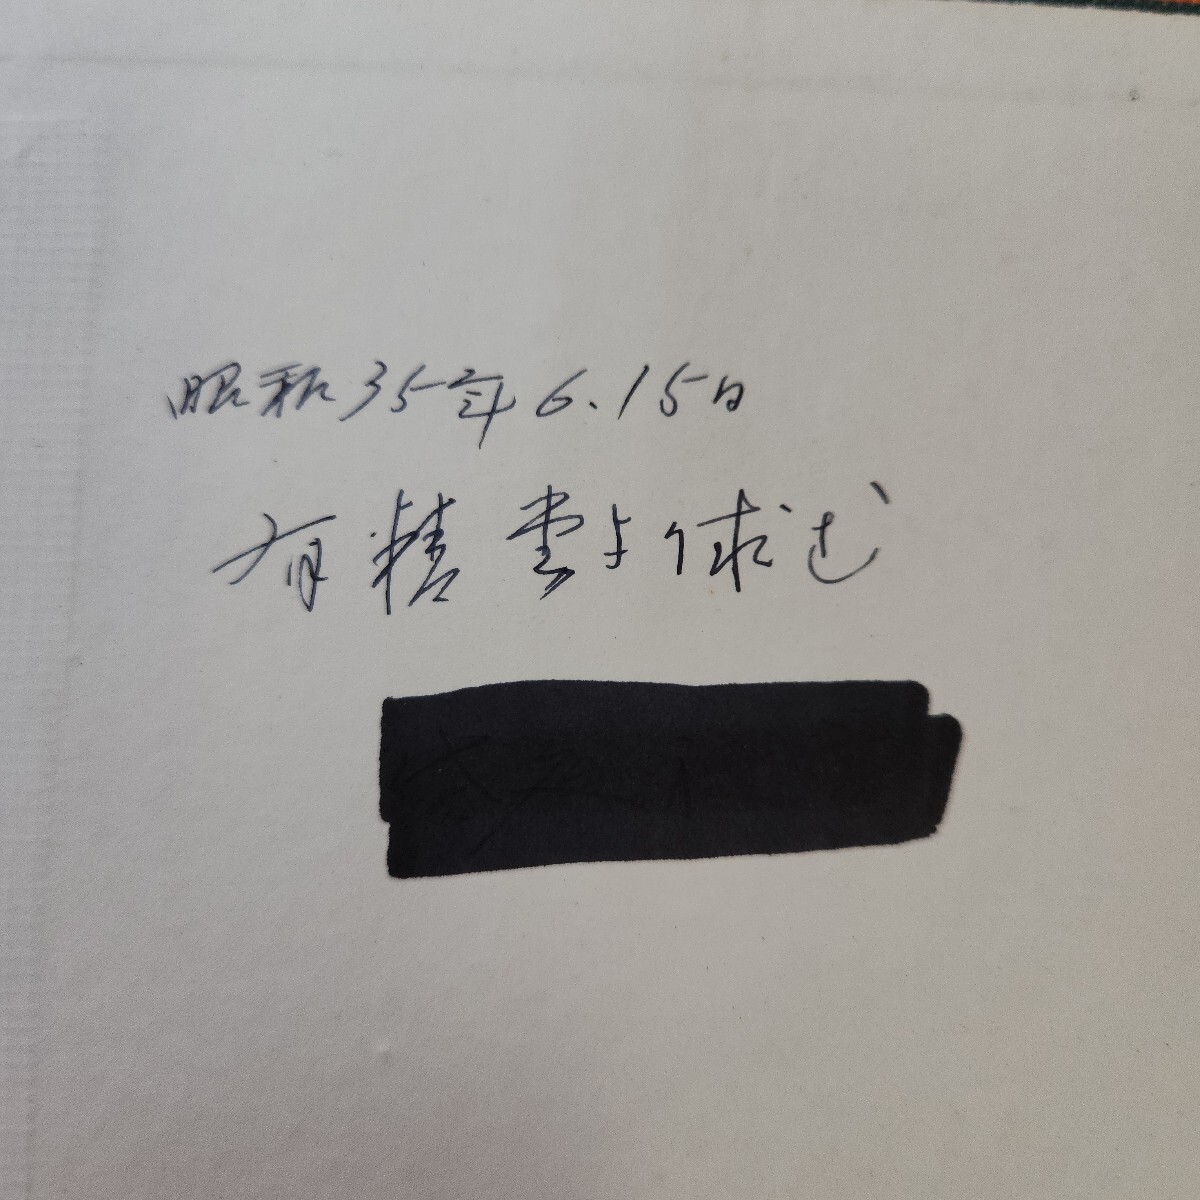 昭和35年6.15日
有精堂より求む